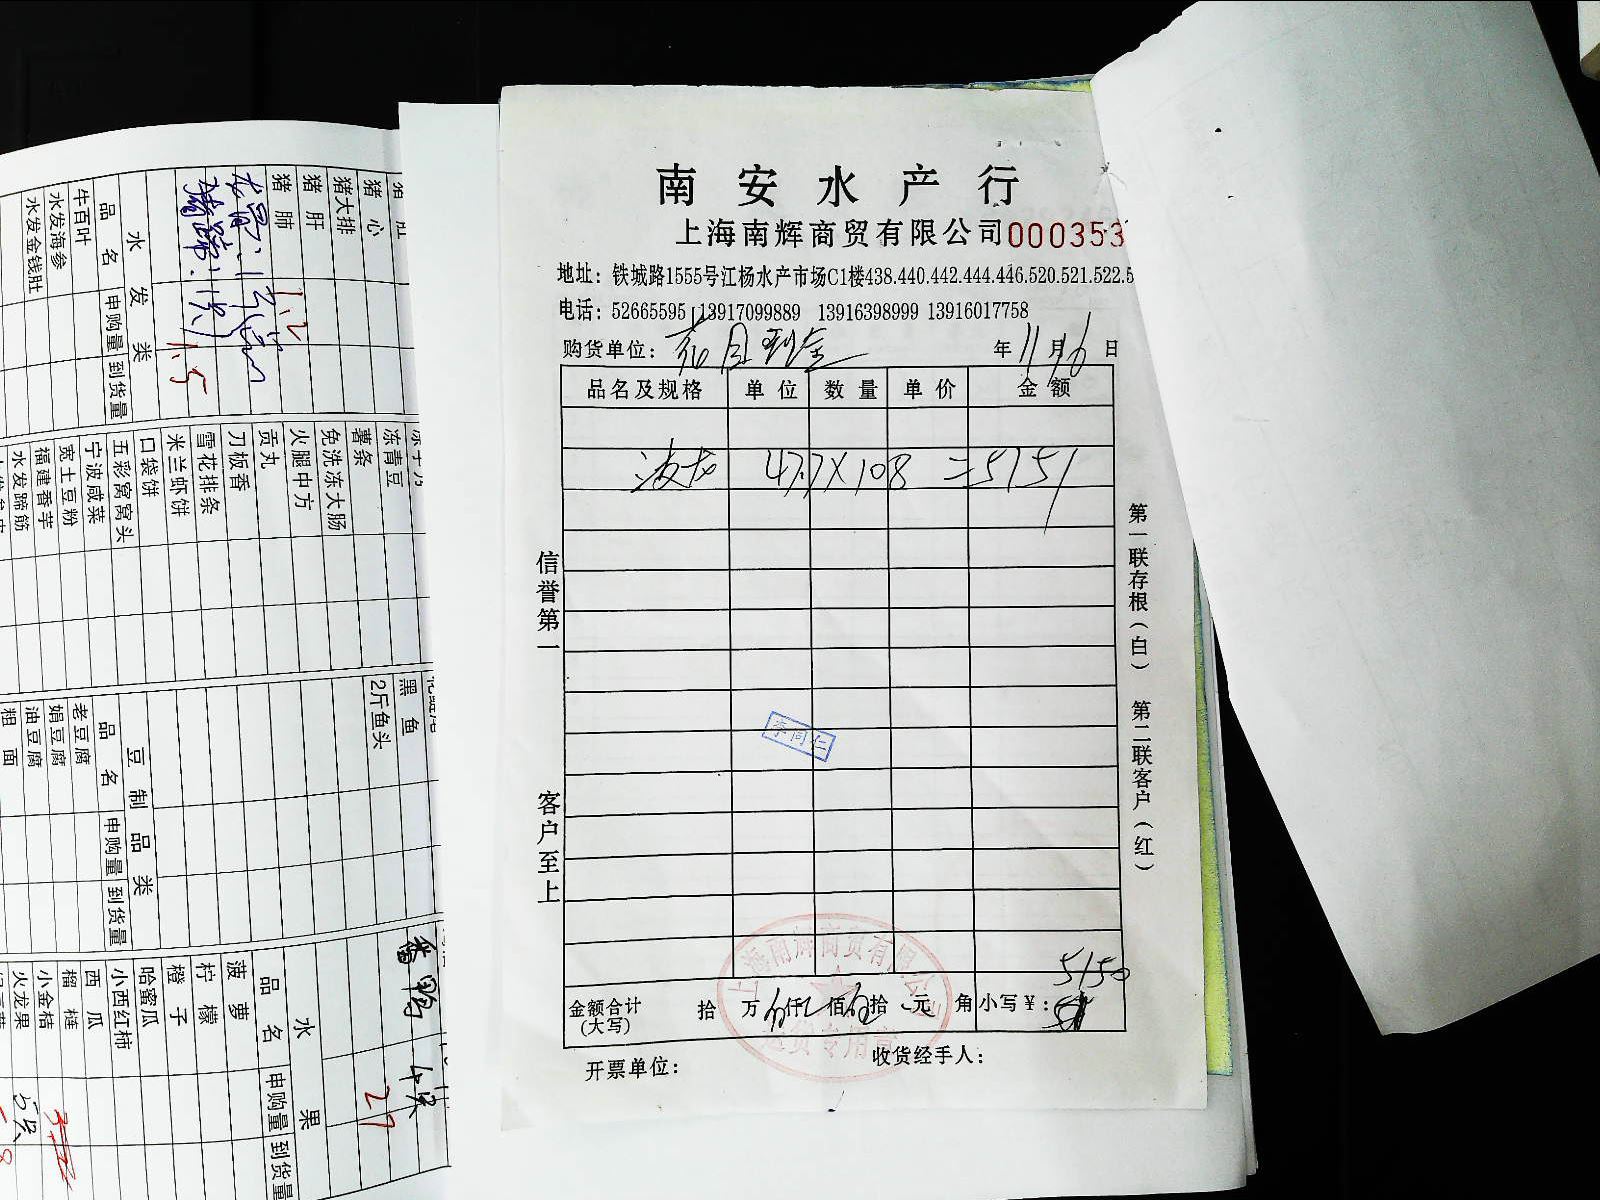 南安水产行
上海南辉商贸有限公司000353
地址：铁城路1555号江杨水产市场C1楼438.440.442.444.446.520.521.522.5
电话：52665595 13917099889 13916398999 13916017758
购货单位： 年11月16日
品名及规格 单位 数量 单价 金额
波龙 47.7X108 =5151
信誉第一
客户至上
李同仁
第一联存根（白） 第二联客户（红）
5150
金额合计（大写） 拾 万伍仟乙佰伍拾 元 角 小写¥：
上海南辉商贸有限公司
开票单位：
收货经手人：
猪心
猪大排
猪肝
猪肺
1.2
1.5
水发类
品名 申购量 到货量
牛百叶
水发海参
水发金钱肚
冻青豆
薯条
免洗冻大肠
火腿中方
贡丸
刀板香
雪花排条
米兰虾饼
口袋饼
五彩窝窝头
宁波咸菜
宽土豆粉
福建香芋
水发蹄筋
黑鱼
2斤鱼头
豆制品类
品名 申购量 到货量
老豆腐
娟豆腐
油豆腐
粗面
27
水果
品名 申购量 到货量
菠萝
柠檬
橙子
哈蜜瓜
小西红柿
西瓜
榴梿
小金桔
火龙果